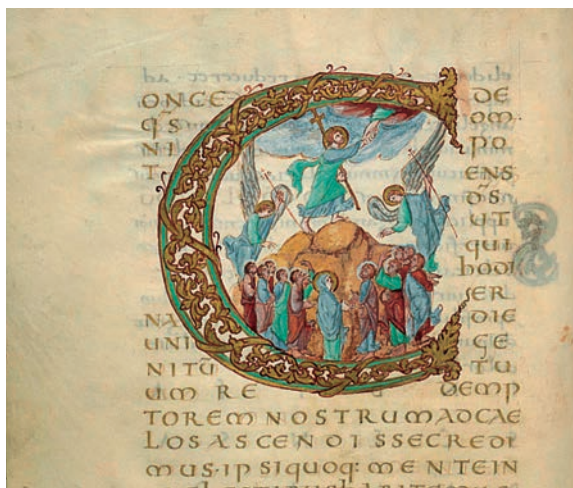 C ONCE DE
q̄S OM·
NI PO
T ENS
D̄S
UT
QUI
hODI
ER
NA DIE
UNI GE
NITŪ TU
UM RE DEMP
TOREM NOSTRUM AD CAE
LOS ASCENDISSE CREDI
MUS· IPSI QUOQ: MENTE IN